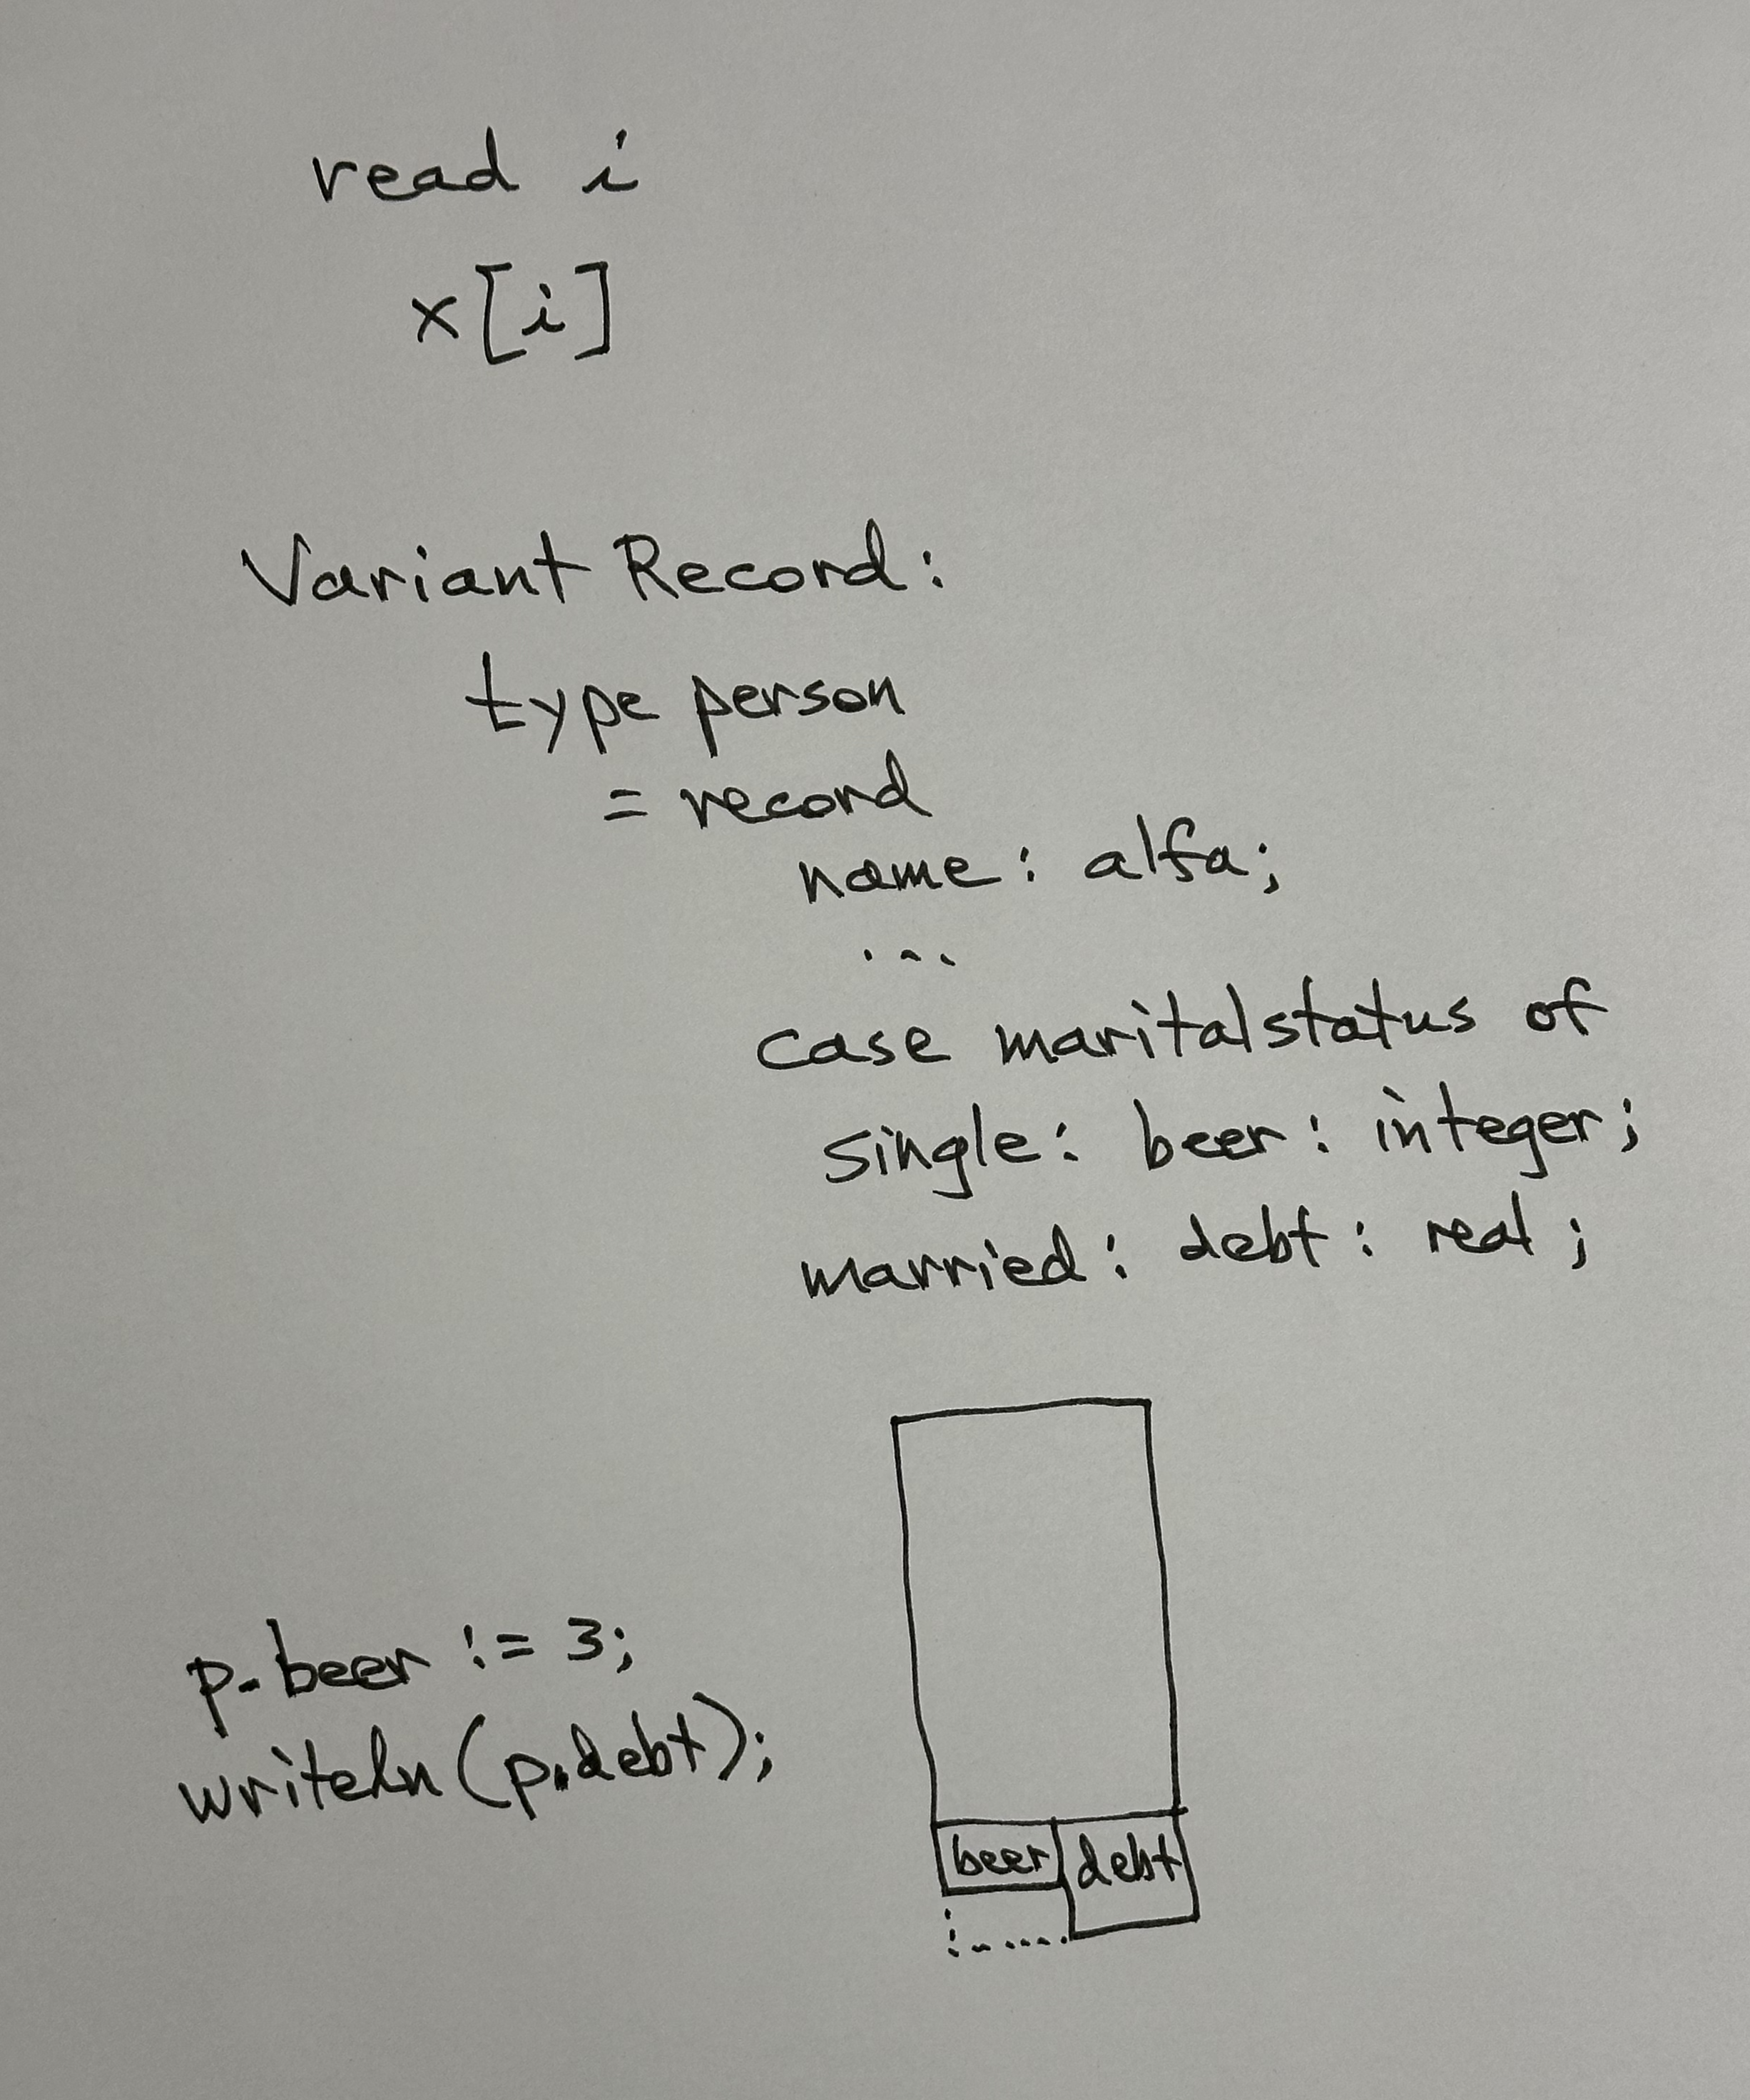 read i
x[i]
Variant Record:
type person
= record
name: alfa;
...
case maritalstatus of
single: beer: integer;
married: debt: real;
p.beer := 3;
writeln(p.debt);
beer debt